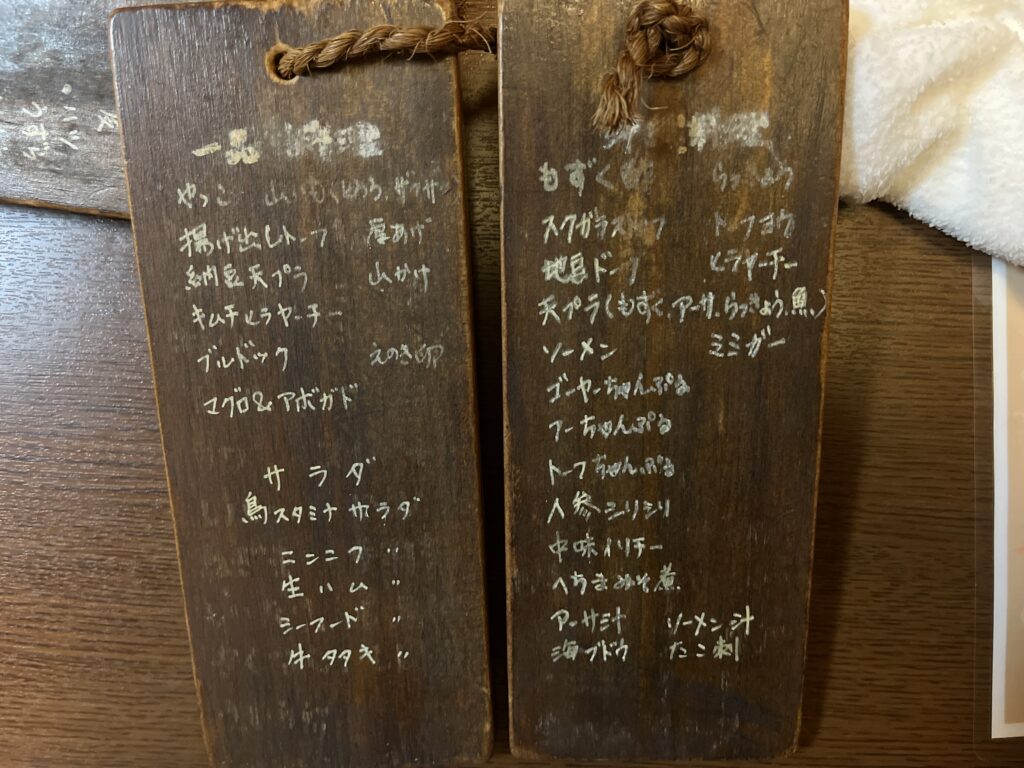 一品料理
やっこ
揚げ出しトーフ 厚あげ
納豆天プラ 山かけ
キムチヒラヤーチー
ブルドック えのき卵
マグロ&アボガド
サラダ
鳥スタミナサラダ
ニンニク 〃
生ハム 〃
シーフード 〃
牛タタキ 〃
もずく らっきょう
スクガラストーフ トーフヨウ
地島ドーフ ヒラヤーチー
天プラ(もずく、アーサ、らっきょう、魚、)
ソーメン ミミガー
ゴーヤーちゃんぷる
フーちゃんぷる
トーフちゃんぷる
人参シリシリ
中味イリチー
へちまみそ煮
アーサミ汁 ソーメン汁
海ブドウ たこ刺